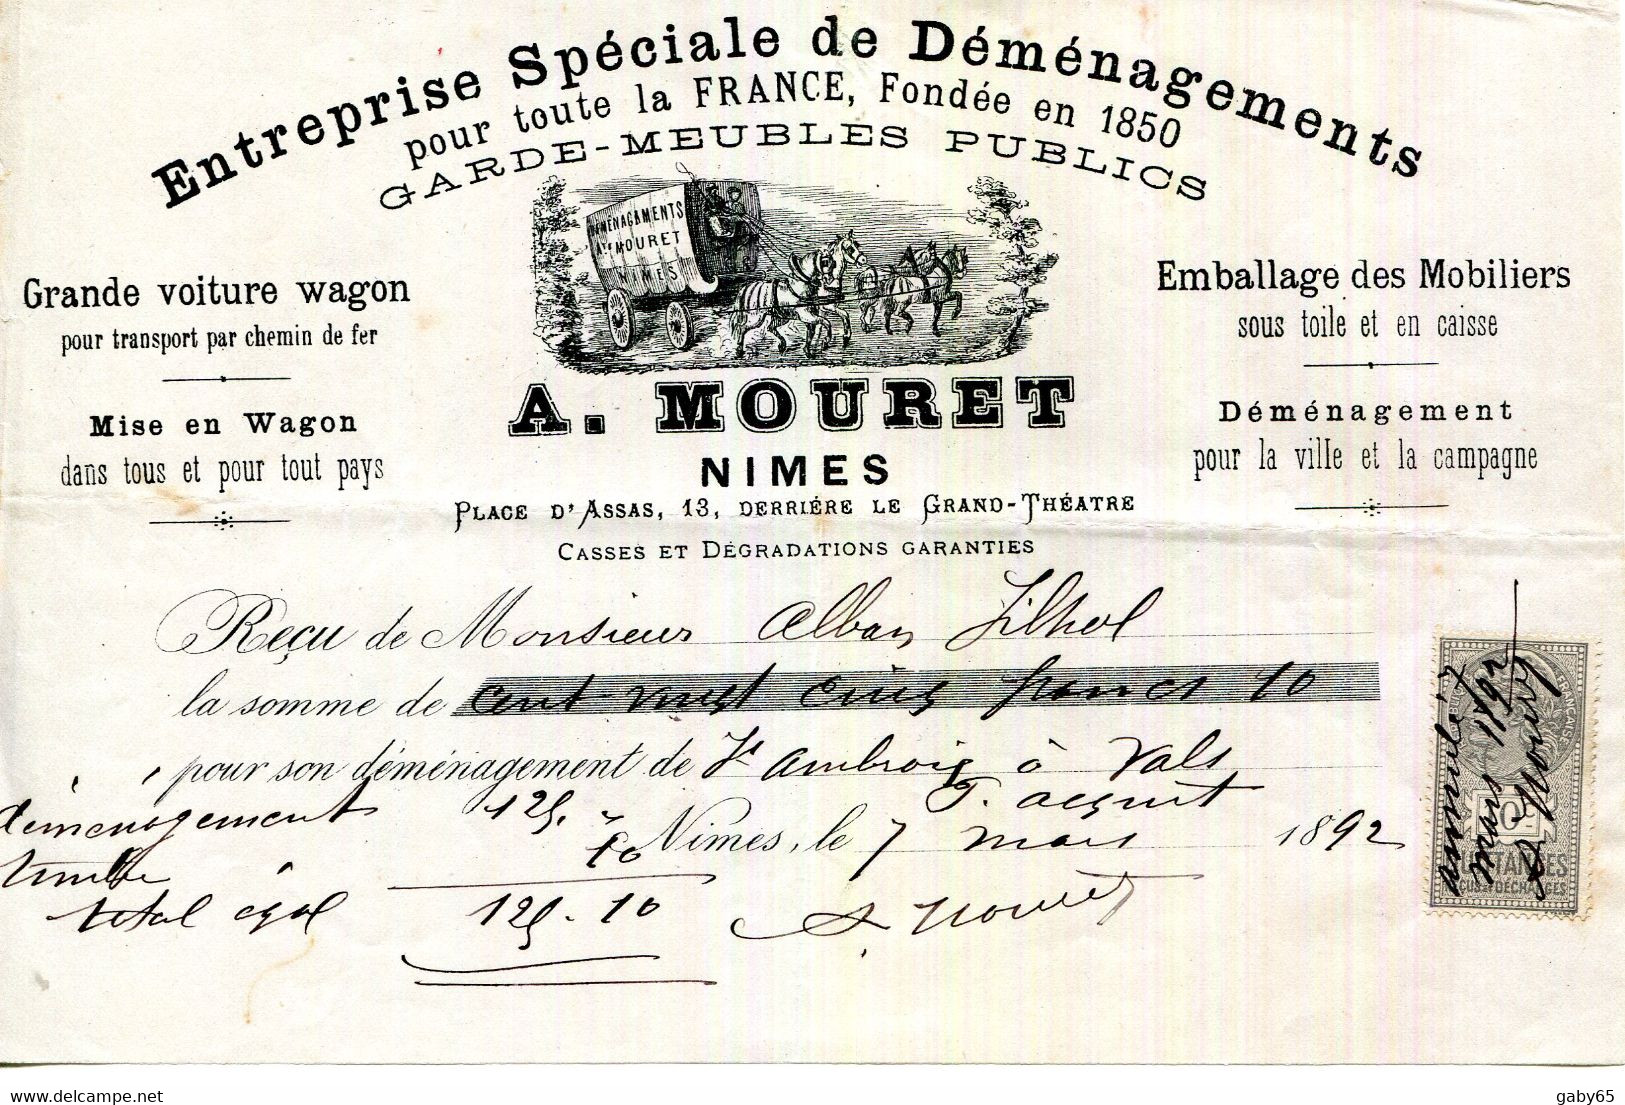 Entreprise Spéciale de Déménagements
pour toute la FRANCE, Fondée en 1850
GARDE-MEUBLES PUBLICS
DÉMÉNAGEMENTS
MOURET
NIMES
Grande voiture wagon
pour transport par chemin de fer
Mise en Wagon
dans tous et pour tout pays
Emballage des Mobiliers
sous toile et en caisse
Déménagement
pour la ville et la campagne
A. MOURET
NIMES
PLACE D'ASSAS, 13, DERRIÉRE LE GRAND-THÉATRE
CASSES ET DÉGRADATIONS GARANTIES
Reçu de Monsieur Alban Filhol
la somme de cent vingt cinq francs 10
pour son déménagement de St Ambroix à Vals
P. acquit
déménagement 125.
timbre 10
Nimes, le 7 mars 1892
total égal 125-10
A. Mouret
mars 1892
A Mouret
QUITTANCES
REÇUS ET DÉCHARGES
delcampe.net
gaby65